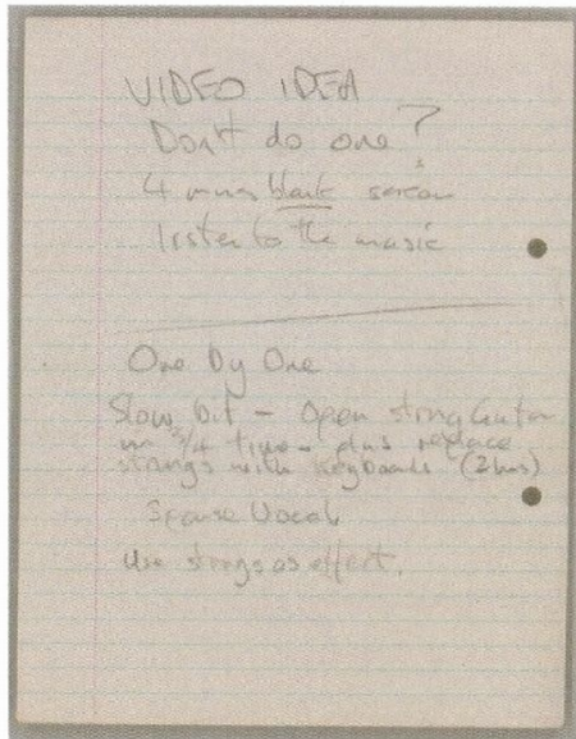 VIDEO IDEA
Don't do one?
4 mins blank screen
listen to the music
One By One
Slow bit - Open string Guitar
in 3/4 time - plus replace
strings with keyboards (2 hrs)
Sparse Vocal
Use strings as effect.